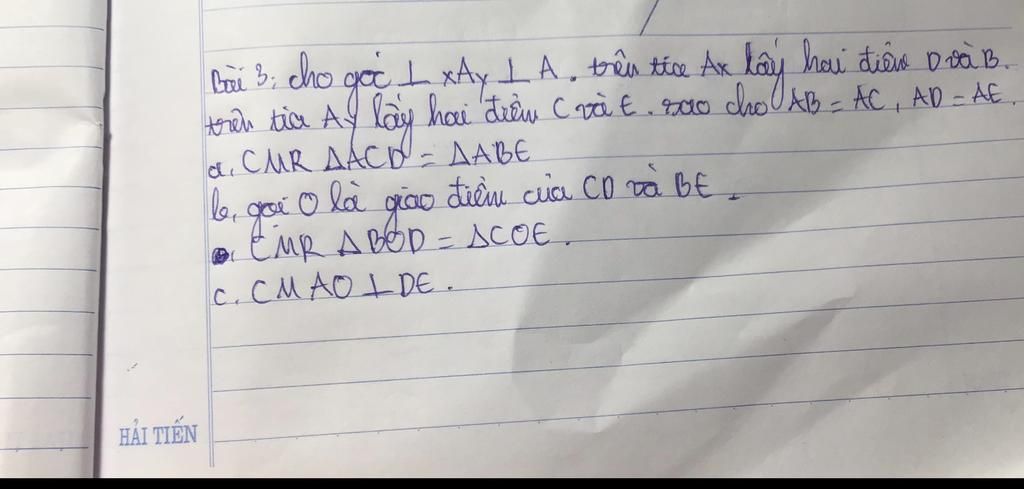 Bài 3: cho góc ⊥ xAy ⊥ A. trên tia Ax lấy hai điểm D và B.
trên tia Ay lấy hai điểm C và E. sao cho AB = AC, AD = AE.
a, CMR ΔACD = ΔABE
b, gọi O là giao điểm của CD và BE.
CMR ΔBOD = ΔCOE.
c. CM AO ⊥ DE.
HẢI TIẾN